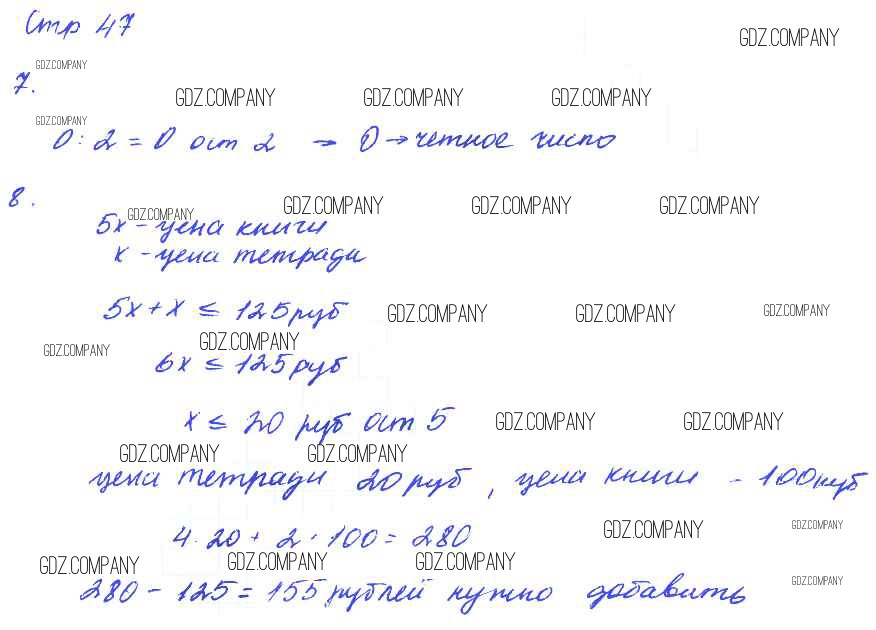 Стр 47
GDZ.COMPANY
GDZ.COMPANY
7.
GDZ.COMPANY GDZ.COMPANY GDZ.COMPANY
GDZ.COMPANY
0 : 2 = 0 ост 2 → 0 → четное число
8.
GDZ.COMPANY GDZ.COMPANY GDZ.COMPANY GDZ.COMPANY
5х - цена книги
х - цена тетради
5х + х ≤ 125 руб GDZ.COMPANY GDZ.COMPANY GDZ.COMPANY
GDZ.COMPANY GDZ.COMPANY
6х ≤ 125 руб
х ≤ 20 руб ост 5 GDZ.COMPANY GDZ.COMPANY
GDZ.COMPANY GDZ.COMPANY
цена тетради 20 руб, цена книги - 100 руб
4 · 20 + 2 · 100 = 280 GDZ.COMPANY GDZ.COMPANY
GDZ.COMPANY GDZ.COMPANY GDZ.COMPANY
280 - 125 = 155 рублей нужно добавить GDZ.COMPANY